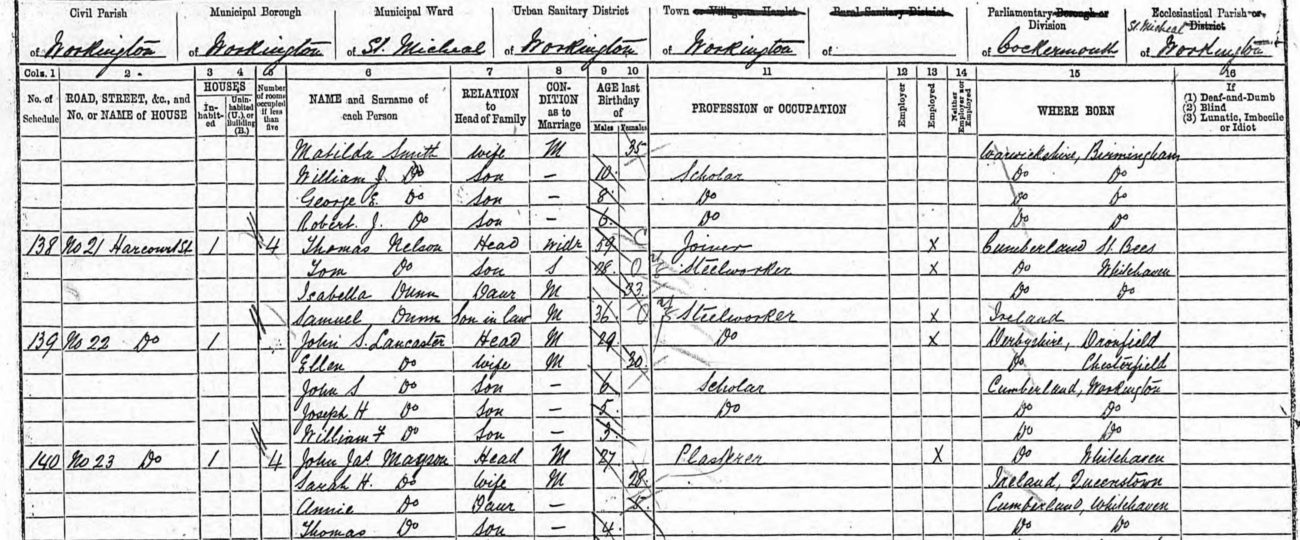 Civil Parish Municipal Borough Municipal Ward Urban Sanitary District Town or Village or Hamlet Rural Sanitary District Parliamentary Borough or Division Ecclesiastical Parish or District
of Workington of Workington of St. Micheal of Workington of Workington of of Cockermouth of St Micheal Workington
Cols. 1 2 3 4 5 6 7 8 9 10 11 12 13 14 15 16
No. of Schedule ROAD, STREET, &c., and No. or NAME of HOUSE HOUSES In-habited Unin-habited (U.) or Building (B.) Number of rooms occupied if less than five NAME and Surname of each Person RELATION to Head of Family CON-DITION as to Marriage AGE last Birthday of Males Females PROFESSION or OCCUPATION Employer Employed Neither Employer nor Employed WHERE BORN If (1) Deaf-and-Dumb (2) Blind (3) Lunatic, Imbecile or Idiot
Matilda Smith wife M 35 Warwickshire, Birmingham
William J. Do Son — 10 Scholar Do Do
George E. Do Son — 8 Do Do Do
Robert. J. Do Son — 6 Do Do Do
138 No 21 Harcourt St 1 4 Thomas Nelson Head Widr 59 Joiner X Cumberland St. Bees
Tom Do Son S 28 Steelworker X Do Whitehaven
Isabella Dunn Daur M 33 Do Do
Samuel Dunn Son in law M 36 Steelworker X Ireland
139 No 22 Do 1 John S. Lancaster Head M 29 Do X Derbyshire, Dronfield
Ellen Do wife M 30 Do Chesterfield
John S Do Son — 6 Scholar Cumberland, Workington
Joseph H Do Son — 5 Do Do Do
William F Do Son — 3 Do Do
140 No 23 Do 1 4 John Jas Mayson Head M 27 Plasterer X Do Whitehaven
Sarah H. Do Wife M 28 Ireland, Queenstown
Annie Do Daur 5 Cumberland, Whitehaven
Thomas Do Son — 4 Do Do